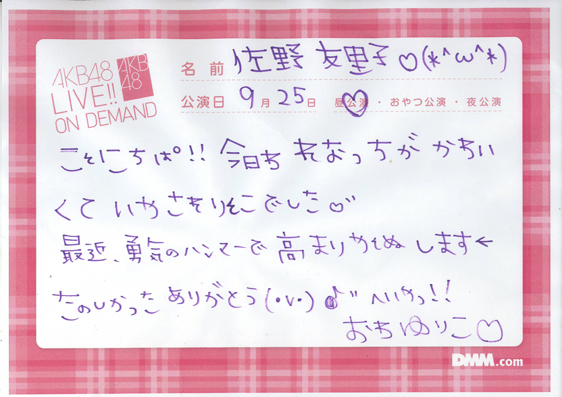 AKB48
LIVE!!
ON DEMAND
AKB
48
名前 佐野 友里子♡(*^ω^*)
公演日 9月25日 昼公演・おやつ公演・夜公演
こそにちぱ!! 今日も れなっちが かわい
くて いやさそりそこでした♡
最近、勇気のハンマーで 高まりやせぬ します←
たのしかった ありがとう(・v・)♪" へいやっ!!
おちゆりこ♡
DMM.com